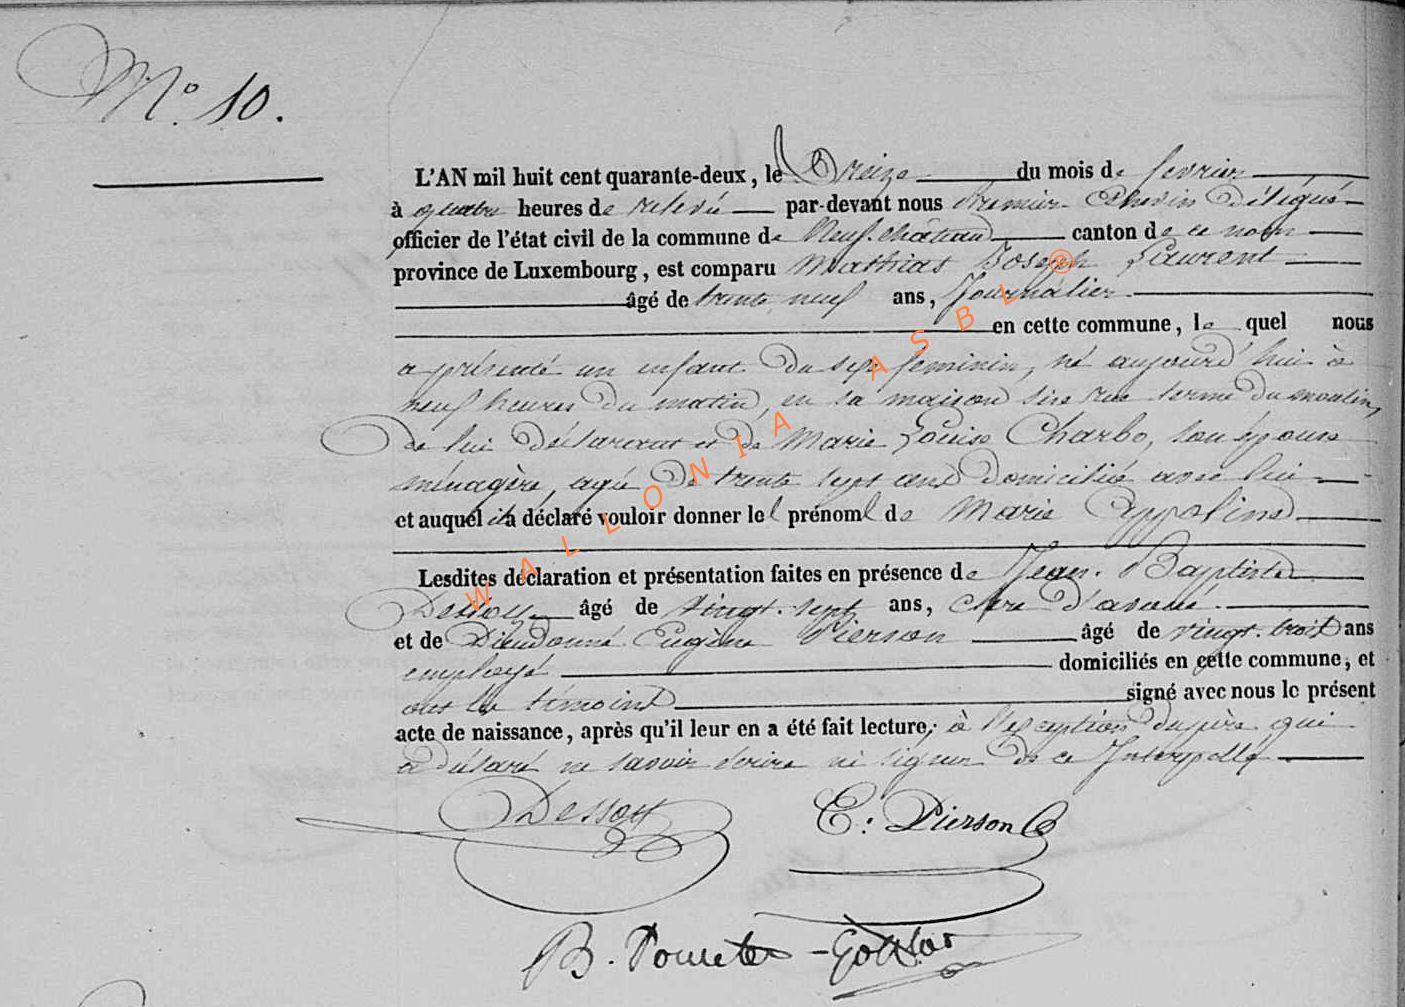 N.º 10.
L'AN mil huit cent quarante-deux, le Treize du mois de fevrier
à quatre heures de relevée par-devant nous Premier Echevin Délégué
officier de l'état civil de la commune de Neufchâteau canton de ce nom
province de Luxembourg, est comparu Mathias Joseph Laurent
âgé de trente neuf ans, Journalier
en cette commune, le quel nous
a présenté un enfant du sexe feminin, né aujourd'hui à
neuf heures du matin, en sa maison sise rue terme du moulin,
de lui déclarant et de Marie Louise Charbo, son épouse
ménagère, agée de trente sept ans domiciliée avec lui
et auquel il a déclaré vouloir donner le prénom de Marie Appoline
Lesdites déclaration et présentation faites en présence de Jean-Baptiste
Dessoy âgé de vingt-sept ans, clerc d'avoué
et de Dieudonné Eugène Pierson âgé de vingt-trois ans
employé domiciliés en cette commune, et
ont les témoins signé avec nous le présent
acte de naissance, après qu'il leur en a été fait lecture, à l'exception du père qui
a déclaré ne savoir écrire ni signer de ce Interpellé
Dessoy E: Pierson
B. Pourcelet
WALLONIA ASBL ®